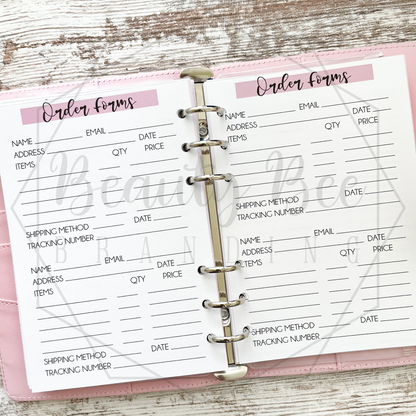 Order Forms
NAME EMAIL DATE
ADDRESS
ITEMS QTY PRICE
SHIPPING METHOD DATE
TRACKING NUMBER
NAME EMAIL DATE
ADDRESS
ITEMS QTY PRICE
SHIPPING METHOD DATE
TRACKING NUMBER
Order Forms
NAME EMAIL DATE
ADDRESS
ITEMS QTY PRICE
SHIPPING METHOD DATE
TRACKING NUMBER
NAME EMAIL DATE
ADDRESS
ITEMS QTY PRICE
SHIPPING METHOD DATE
TRACKING NUMBER
Beauty Bee
BRANDING